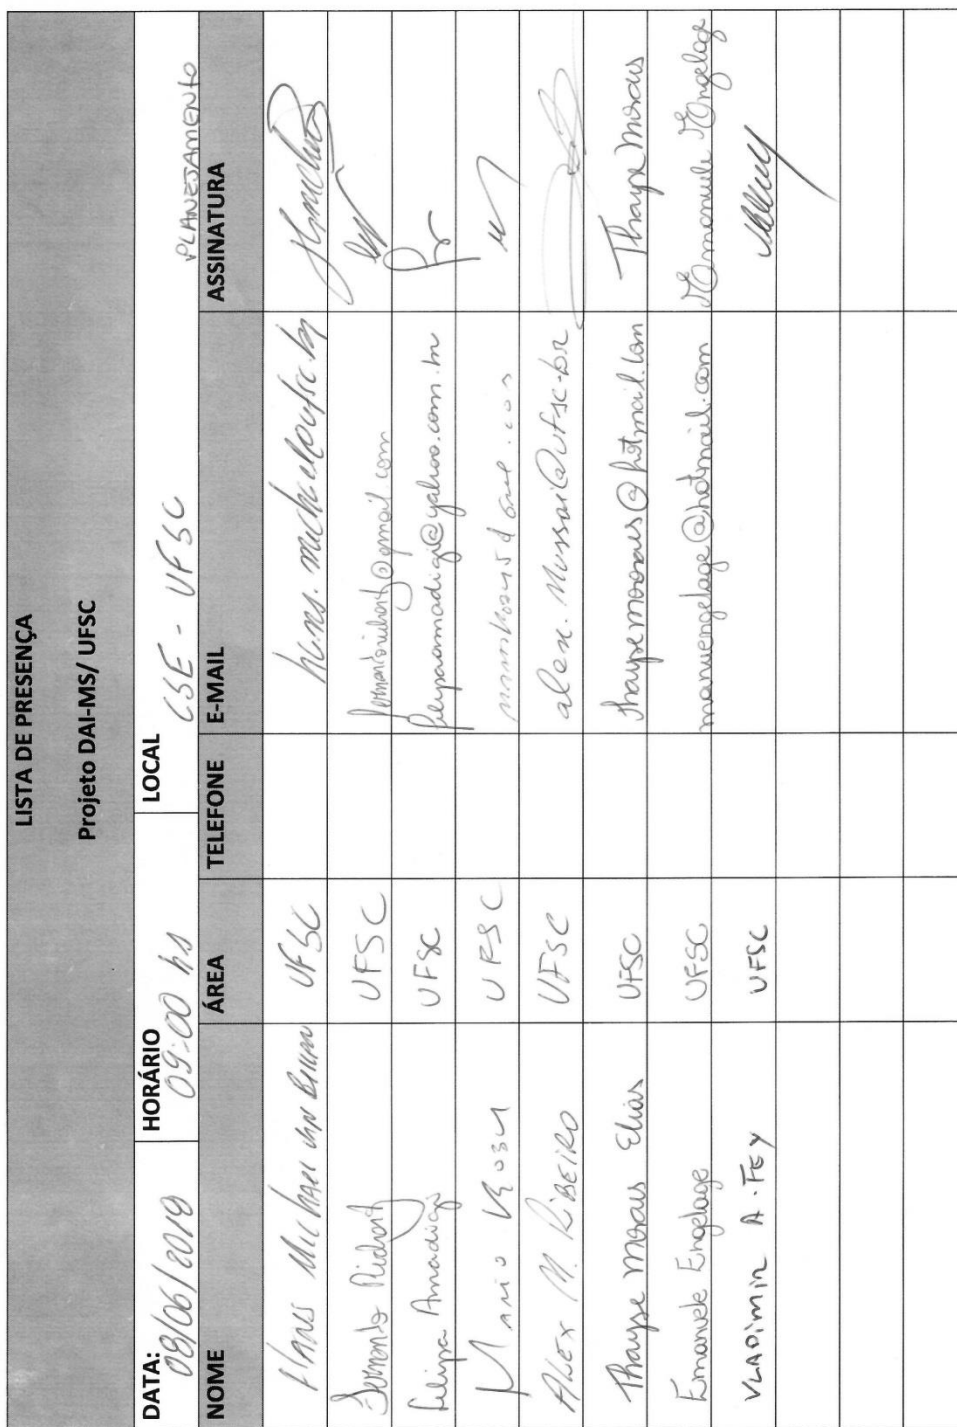 LISTA DE PRESENÇA
Projeto DAI-MS/ UFSC
DATA: 08/06/2019 HORÁRIO 09:00 hs LOCAL CSE - UFSC PLANEJAMENTO
NOME ÁREA TELEFONE E-MAIL ASSINATURA
Hans Michael van UFSC
Fernando Richartz UFSC fernandorichartz@gmail.com
Filipa Amadigi UFSC filipaamadigi@yahoo.com.br
UFSC
Alex M. Ribeiro UFSC alex.mussoi@ufsc.br
Thayse Moraes Elias UFSC thaysemooraes@hotmail.com Thayse Moraes
Emanuele Engelage UFSC manuengelage@hotmail.com Emanuele Engelage
VLADIMIR A. FEY UFSC